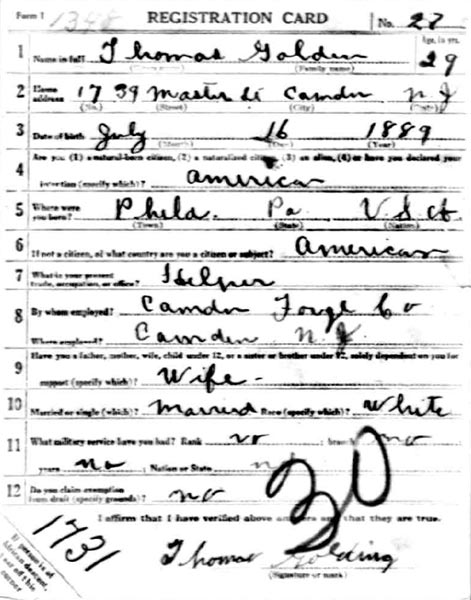 Form 1 1348 REGISTRATION CARD No. 27
1 Name in full Thomas Golden Age, in yrs. 29
(Family name)
2 Home address 1739 Master St Camden N J
(No.) (Street) (City) (State)
3 Date of birth July 16 1889
(Month) (Day) (Year)
Are you (1) a natural-born citizen, (2) a naturalized citizen, (3) an alien, (4) or have you declared your
4 intention (specify which)? american
5 Where were you born? Phila. Pa U.S.A
(Town) (State) (Nation)
6 If not a citizen, of what country are you a citizen or subject? American
7 What is your present trade, occupation, or office? Helper
8 By whom employed? Camden Forge Co
Where employed? Camden N. J.
Have you a father, mother, wife, child under 12, or a sister or brother under 12, solely dependent on you for
9 support (specify which)? Wife -
10 Married or single (which)? Married Race (specify which)? White
11 What military service have you had? Rank no ; branch no
years no ; Nation or State
12 Do you claim exemption from draft (specify grounds)? no
30
I affirm that I have verified above answers and that they are true.
1731
Thomas Golding
(Signature or mark)
If person is of
African descent,
corner